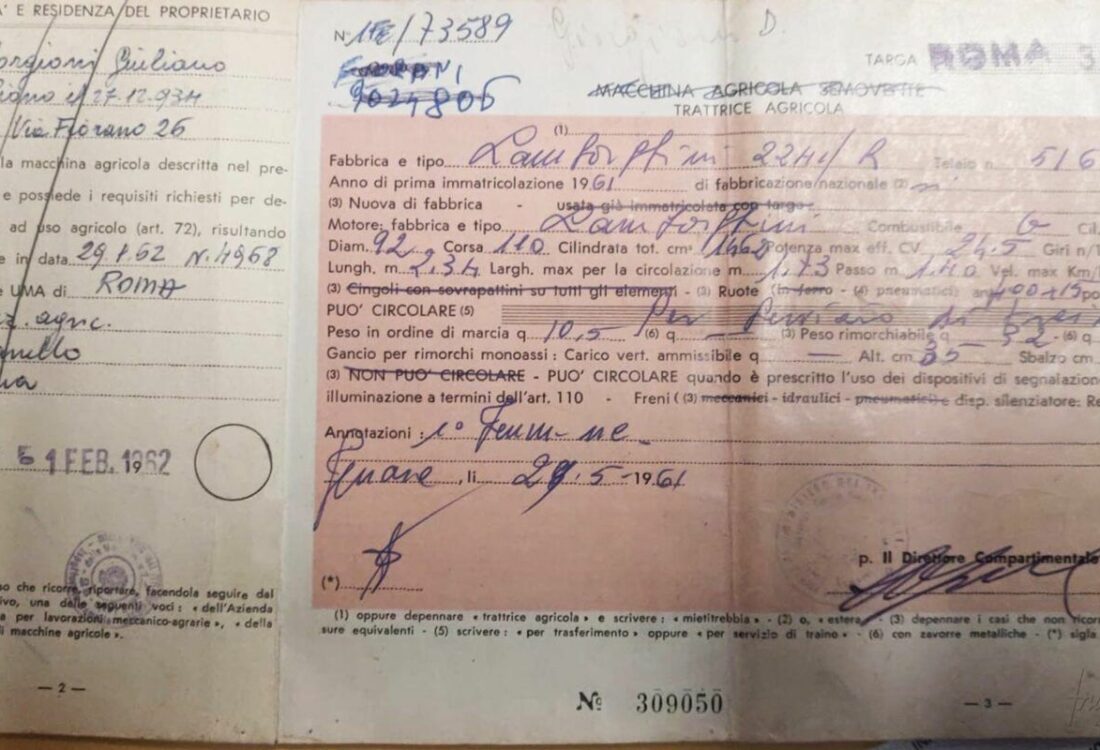 A' E RESIDENZA DEL PROPRIETARIO
Giuliano
27.12.934
Via Fiorano 26
la macchina agricola descritta nel pre-
e possiede i requisiti richiesti per de-
ad uso agricolo (art. 72), risultando
e in data 29.1.62 N. 4968
e UMA di ROMA
agric.
1 FEB. 1962
so che ricorre, riportare, facendola seguire dal
ivo, una delle seguenti voci: « dell'Azienda
a per lavorazioni meccanico-agrarie », « della
i macchine agricole ».
— 2 —
N. /73589
D.
9024806
TARGA ROMA 3
MACCHINA AGRICOLA SEMOVENTE
TRATTRICE AGRICOLA
(1)
Fabbrica e tipo Lamborghini 22 R Telaio n. 516
Anno di prima immatricolazione 1961 di fabbricazione nazionale (2) si
(3) Nuova di fabbrica - usata già immatricolata con targa
Motore: fabbrica e tipo Lamborghini Combustibile G Cil.
Diam. 92 Corsa 110 Cilindrata tot. cm³ 1462 Potenza max eff. CV 24.5 Giri n/1
Lungh. m 2.34 Largh. max per la circolazione m 1.73 Passo m 1.40 Vel. max Km/
(3) Cingoli con sovrapattini su tutti gli elementi - (3) Ruote (in ferro - (4) pneumatici)
PUO' CIRCOLARE (5) Per Servizio di
Peso in ordine di marcia q 10,5 (6) q — (3) Peso rimorchiabile q 52 - (6) q
Gancio per rimorchi monoassi: Carico vert. ammissibile q — Alt. cm 35 Sbalzo cm
(3) NON PUO' CIRCOLARE - PUO' CIRCOLARE quando è prescritto l'uso dei dispositivi di segnalazione
illuminazione a termini dell'art. 110 - Freni ( (3) meccanici - idraulici - pneumatici disp. silenziatore: Re
Annotazioni: 1°
, li 29.5-1961
(*)
p. Il Direttore Compartimentale
(1) oppure depennare « trattrice agricola » e scrivere: « mietitrebbia » - (2) o, « estera » - (3) depennare i casi che non ricor
sure equivalenti - (5) scrivere: « per trasferimento » oppure « per servizio di traino » - (6) con zavorre metalliche - (*) sigla
Nº 309050
— 3 —